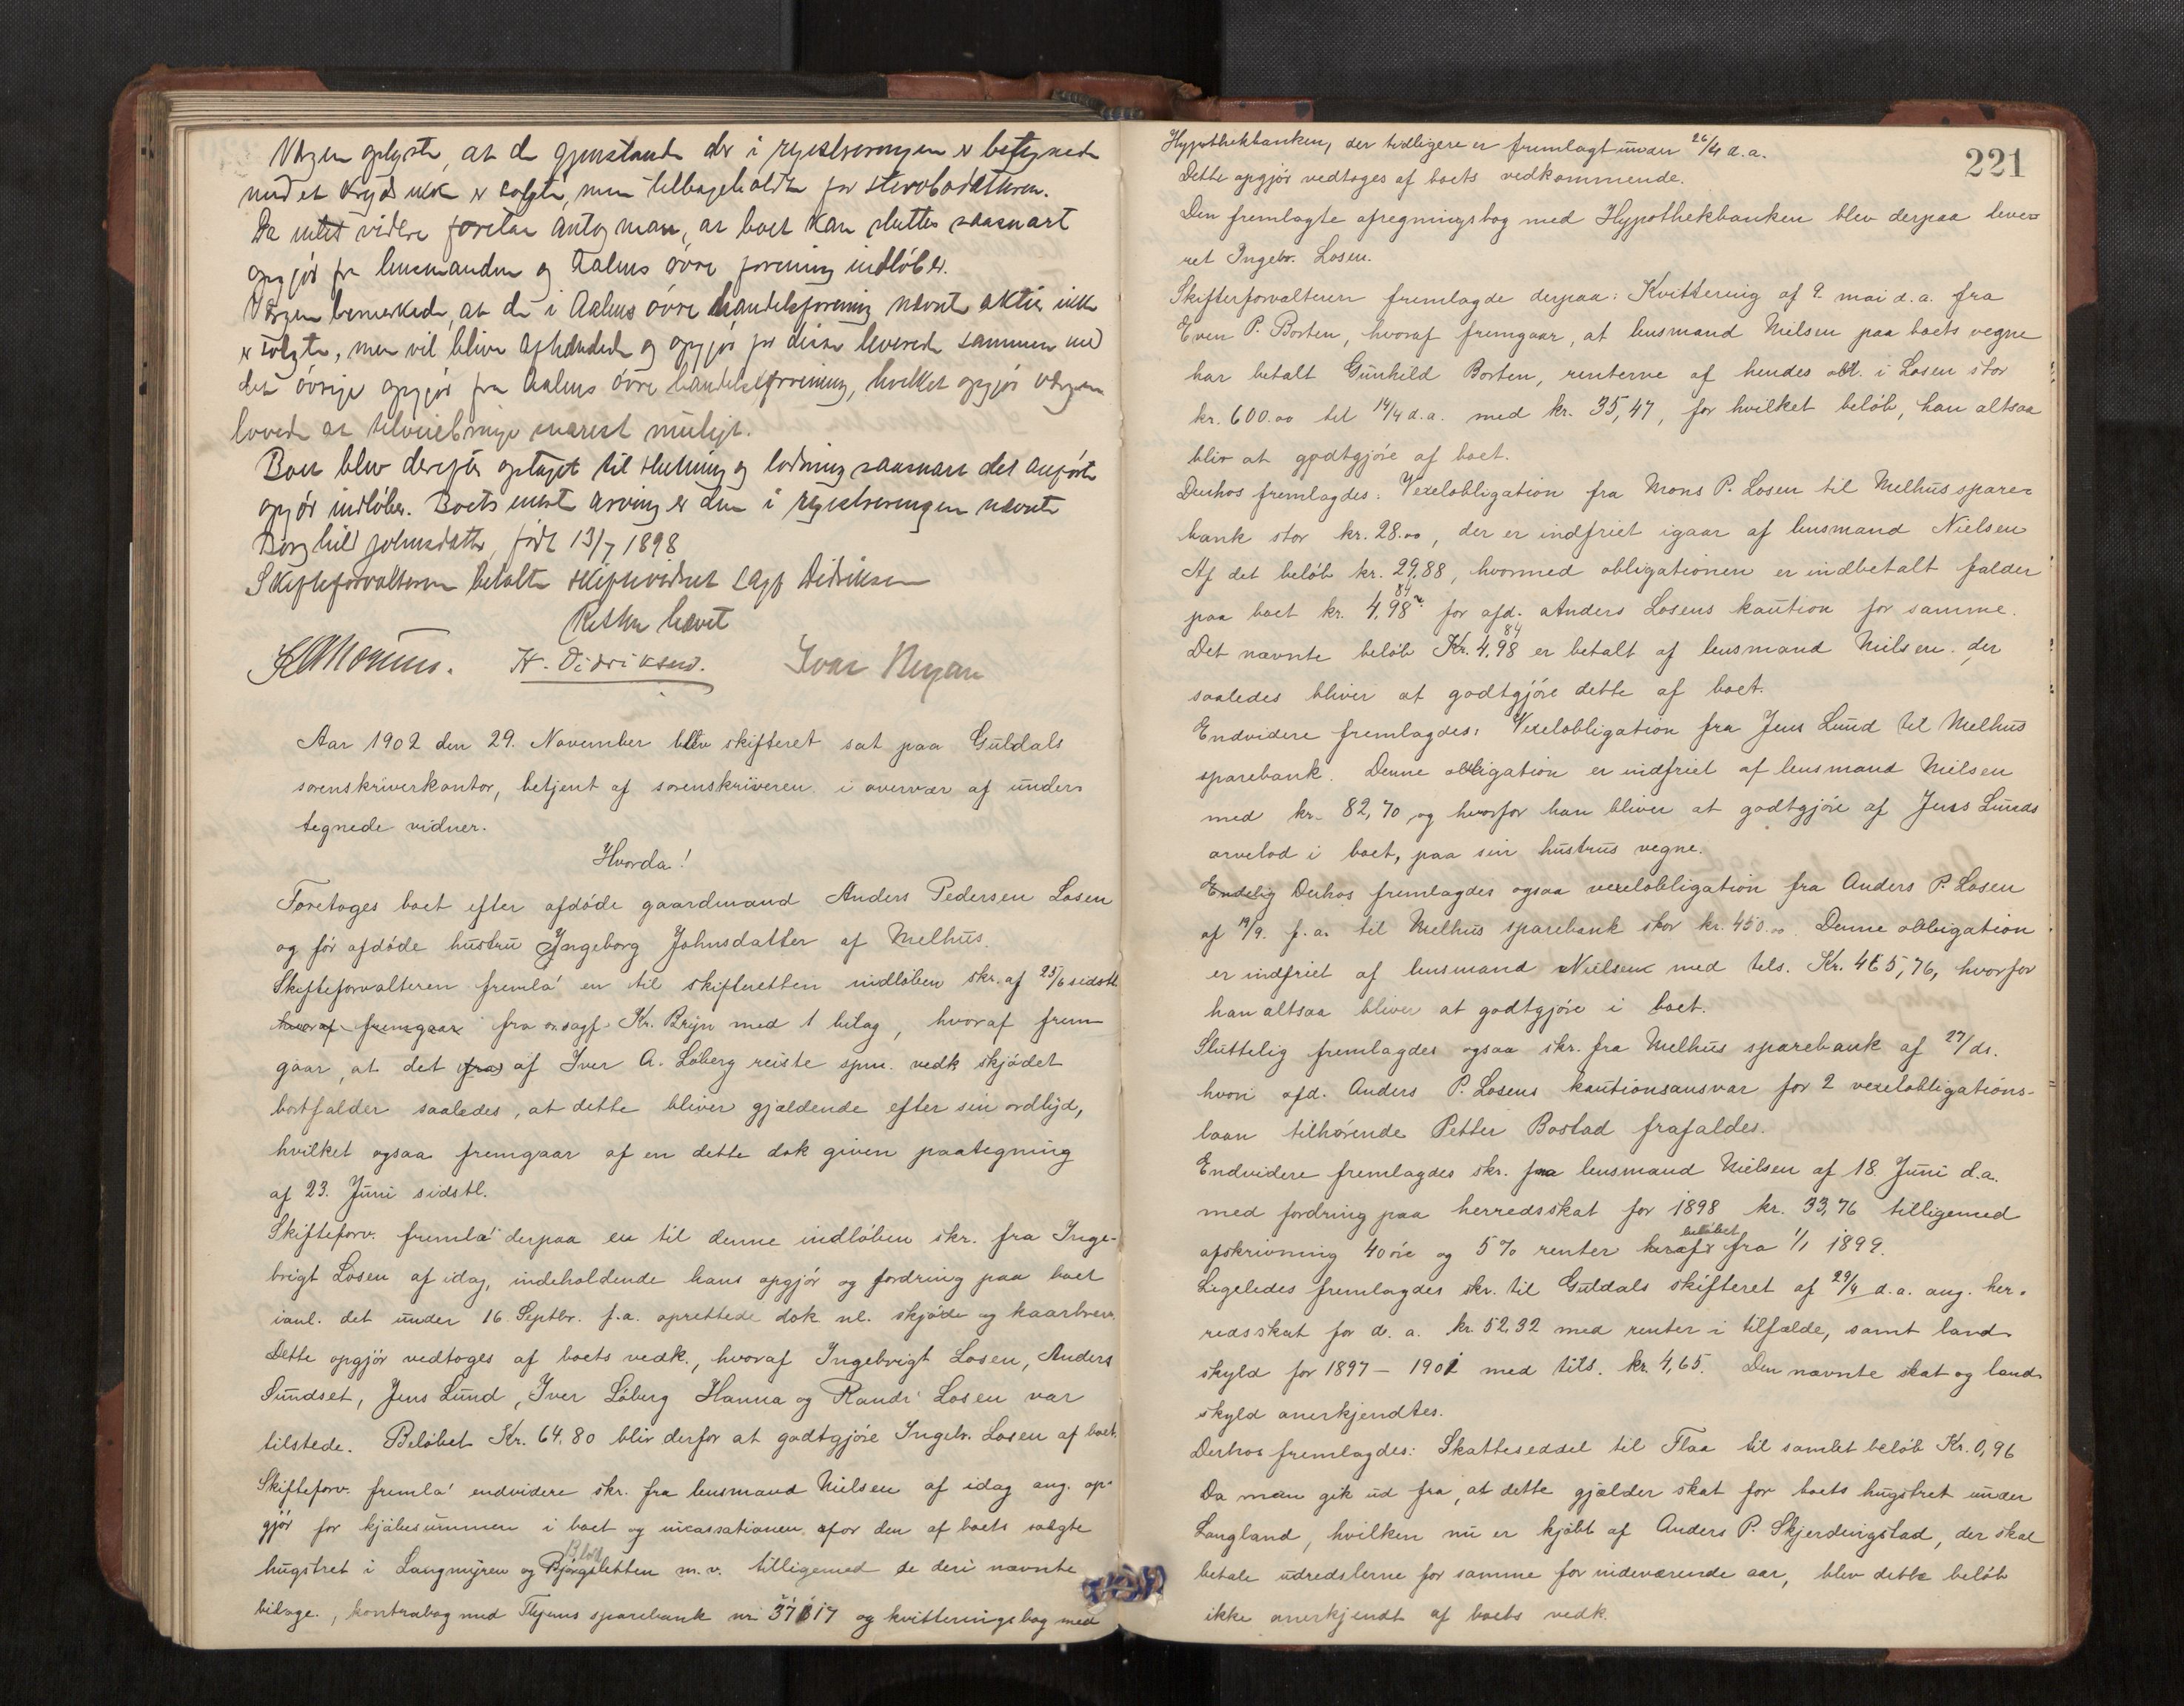 Værgen oplyste, at de gjenstande der i registreringen er betegnede
med et kryds ikke er solgte, men tilbageholdt for sterbodatteren.
Da intet videre foretas antog man, at boet kan sluttes saasnart
opgjør fra lensmanden og Aalens øvre forening indløber.
Værgen bemerkede, at de i Aalens øvre handelsforening nævnte aktier ikke
er solgte, men vil blive afhændede og opgjør for disse leverede sammen med
det øvrige opgjør fra Aalens øvre handelsforening, hvilket opgjør værgen
lovede at tilveiebringe snarest muligt.
Boet blev derefter optaget til slutning og lodning saasnart det anførte
opgjør indløber. Boets eneste arving er den i registreringen nævnte
Borghild Johnsdatter, født 13/7 1898
Skifteforvalteren betalte skiftevidnet sagf Didriksen
Retten hævet
H. Didriksen. Ivar Reyan
Aar 1902 den 29. November blev skifteret sat paa Guldals
sorenskriverkontor, betjent af sorenskriveren i overvær af under-
tegnede vidner.
Hvorda!
Foretoges boet efter afdøde gaardmand Anders Pedersen Losen
og før afdøde hustru Ingeborg Johnsdatter af Melhus.
Skifteforvalteren fremla' en til skifteretten indløben skr. af 25/6 sidstl
hvoraf fremgaar fra o.sagf. Kr. Bryn med 1 bilag, hvoraf frem-
gaar, at det fra af Iver A. Løberg reiste spm. vedk skjødet
bortfalder saaledes, at dette bliver gjældende efter sin ordlyd,
hvilket ogsaa fremgaar af en dette dok given paategning
af 23. Juni sidstl.
Skifteforv. fremla' derpaa en til denne indløben skr. fra Inge-
brigt Losen af idag, indeholdende hans opgjør og fordring paa boet
ianl. det under 16. Septbr. f.a. oprettede dok nl. skjøde og kaarbrev.
Dette opgjør vedtoges af boets vedk., hvoraf Ingebrigt Losen, Anders
Sundset, Jens Lund, Iver Løberg Hanna og Randi Losen var
tilstede. Beløbet Kr. 64.80 blir derfor at godtgjøre Ingebr. Losen af boet.
Skifteforv. fremla' endvidere skr. fra lensmand Nielsen af idag ang. op-
gjør for kjøbesummen i boet og incassationen afor den af boets solgte
hugstret i Langmyren og Bjørgsletten m.v. tilligemed de deri nævnte
bilage., kontrabog med Thjems sparebank nr 37117 og kvitteringsbog med
221
Hypothekbanken, der tidligere er fremlagt under 26/4 d.a.
Dette opgjør vedtoges af boets vedkommende.
Den fremlagte afregningsbog med Hypothekbanken blev derpaa leve-
ret Ingebr. Losen.
Skifterforvalteren fremlagde derpaa: Kvittering af 9. mai d.a. fra
Even P. Borten, hvoraf fremgaar, at lensmand Nielsen paa boets vegne
har betalt Gunhild Borten, renterne af hendes obl. i Losen stor
kr. 600.00 til 14/4 d.a. med kr. 35,47, for hvilket beløb, han altsaa
blir at godtgjøre af boet.
Derhos fremlagdes: Vexelobligation fra Mons P. Losen til Melhus spare-
bank stor kr. 28.00, der er indfriet igaar af lensmand Nielsen
Af det beløb kr. 29,88, hvormed obligationen er indbetalt falder
paa boet kr. 4,98 84 for afd. Anders Losens kaution for samme.
Det nævnte beløb Kr. 4,98 84 er betalt af lensmand Nielsen. der
saaledes bliver at godtgjøre dette af boet.
Endvidere fremlagdes: Vexelobligation fra Jens Lund til Melhus
sparebank. Denne obligation er indfriet af lensmand Nielsen
med kr. 82,70 og hvorfor han bliver at godtgjøre af Jens Lunds
arvelod i boet, paa sin hustrus vegne.
Endelig Derhos fremlagdes ogsaa vexelobligation fra Anders P. Losen
af 19/9. f.a. til Melhus sparebank stor kr. 450.00. Denne obligation
er indfriet af lensmand Nielsen med tils. Kr. 465,76, hvorfor
han altsaa bliver at godtgjøre i boet.
Sluttelig fremlagdes ogsaa skr. fra Melhus sparebank af 27/ds.
hvori afd. Anders P. Losens kautionsansvar for 2 vexelobligations-
laan tilhørende Petter Bostad frafaldes.
Endvidere fremlagdes skr. fra lensmand Nielsen af 18 Juni d.a.
med fordring paa herredsskat for 1898 kr. 33,76 tilligemed
afskrivning 40 øre og 5% renter heraf beløbet fra 1/1 1899.
Ligeledes fremlagdes skr. til Guldals skifteret af 29/4 d.a. ang. her-
redsskat for d. a. kr. 52,32 med renter i tilfælde, samt land-
skyld for 1897 – 1901 med tils. kr. 4,65. Den nævnte skat og land-
skyld anerkjendtes.
Derhos fremlagdes: Skatteseddel til Flaa til samlet beløb Kr. 0,96
Da man gik ud fra, at dette gjælder skat for boets hugstret under
Langland, hvilken nu er kjøbt af Anders P. Skjerdingstad, der skal
betale udredslerne for samme for indeværende aar, blev dette beløb
ikke anerkjendt af boets vedk.